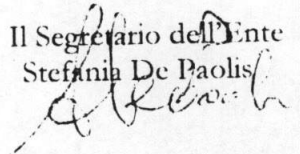 Il Segretario dell'Ente
Stefania De Paolis